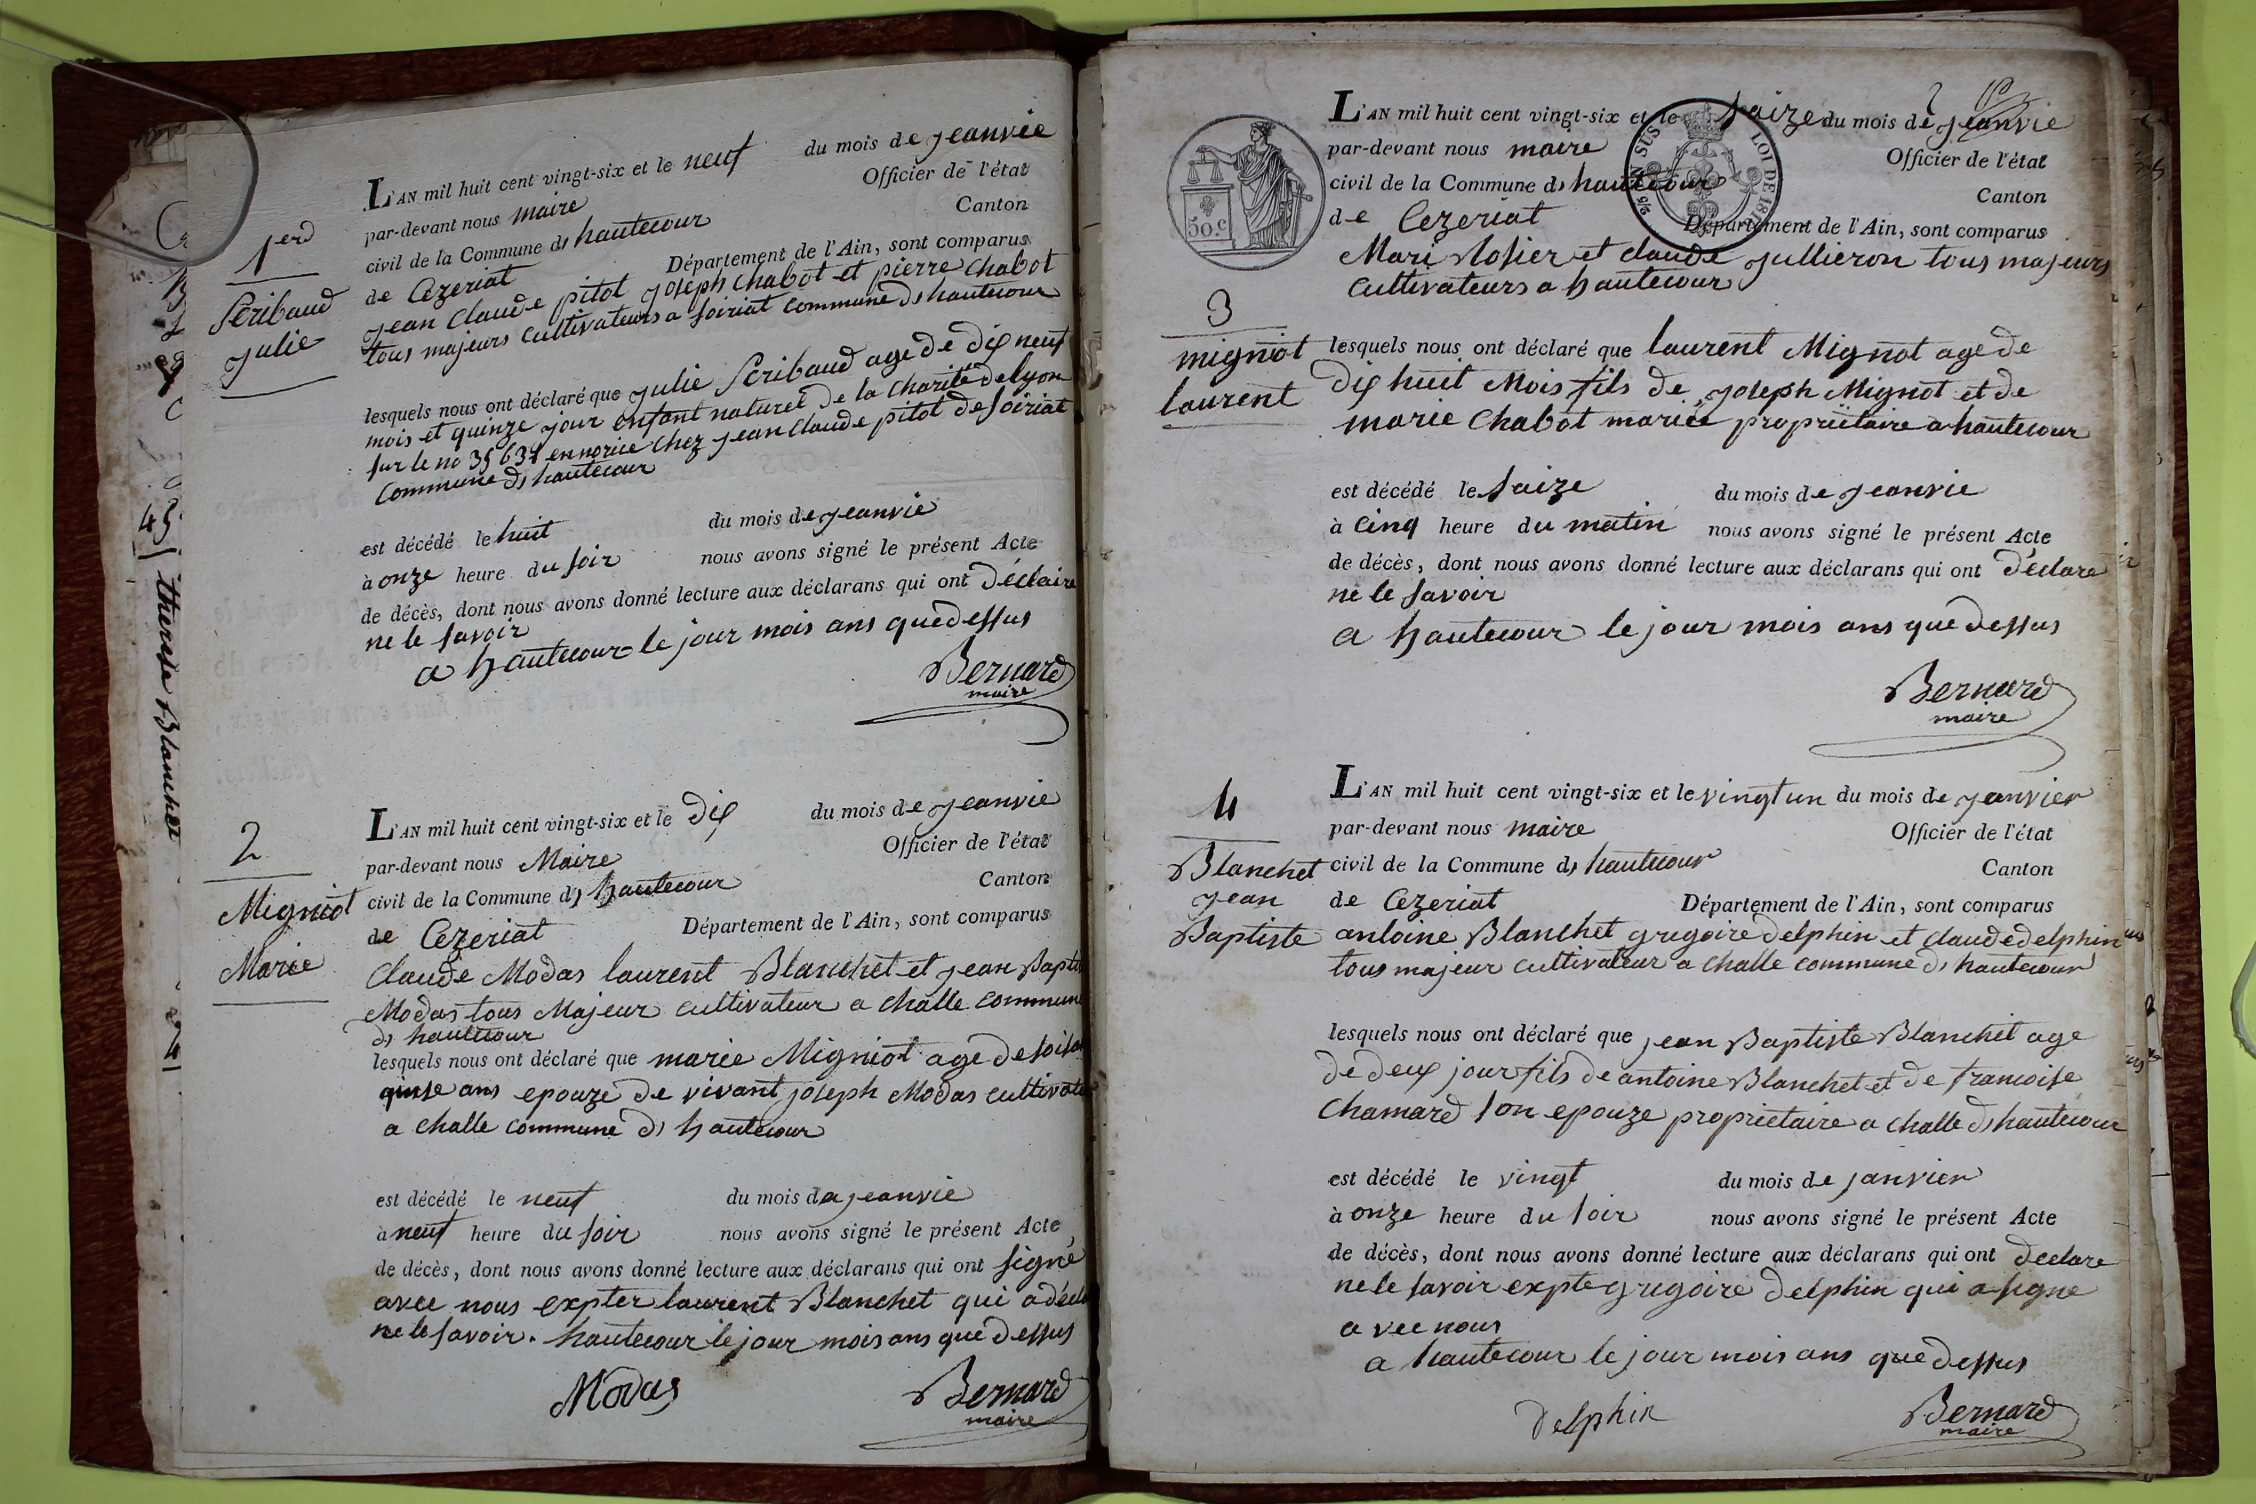 1er
Scribaud
Julie
L'AN mil huit cent vingt-six et le neuf du mois de jeanvie
par-devant nous maire Officier de l'état
civil de la Commune d hautecour Canton
de Cezeriat Département de l'Ain, sont comparus
jean Claude pitot joseph Chabot et pierre Chabot
tous majeurs cultivateurs a soiriat commune d hautecour
lesquels nous ont déclaré que julie Scribaud age de dix neuf
mois et quinze jour enfant naturel de la charité de lyon
sur le no en norice chez jean Claude pitot de soiriat
commune d hautecour
est décédé le huit du mois de jeanvie
à onze heure du soir nous avons signé le présent Acte
de décès, dont nous avons donné lecture aux déclarans qui ont déclaire
ne le savoir
a hautecour le jour mois ans que dessus
Bernard
maire
2
Migniot
Marie
L'AN mil huit cent vingt-six et le dix du mois de jeanvie
par-devant nous Maire Officier de l'état
civil de la Commune d hautecour Canton
de Cezeriat Département de l'Ain, sont comparus
Claude Modas laurent Blanchet et jean Bapti
Modas tous Majeur cultivateur a challe commune
d hautecour
lesquels nous ont déclaré que marie Migniot age de
ans epouze de vivant joseph Modas
a challe commune d hautecour
est décédé le neuf du mois de jeanvie
à neuf heure du soir nous avons signé le présent Acte
de décès, dont nous avons donné lecture aux déclarans qui ont signé
avec nous expter laurent Blanchet qui a
ne le savoir. hautecour le jour mois ans que dessus
Modas
Bernard
maire
45 therese Blanchet
50.c
EN SUS LOI DE
3
migniot
laurent
L'AN mil huit cent vingt-six et le saize du mois de jeanvie
par-devant nous maire Officier de l'état
civil de la Commune d hautecour Canton
de Cezeriat Département de l'Ain, sont comparus
Mari Rosier et claude jullieron tous majeurs
cultivateurs a hautecour
lesquels nous ont déclaré que laurent Mignot age de
dix huit Mois fils de joseph Mignot et de
marie Chabot mariée proprietaire a hautecour
est décédé le saize du mois de jeanvie
à cinq heure du matin nous avons signé le présent Acte
de décès, dont nous avons donné lecture aux déclarans qui ont déclare
ne le savoir
a hautecour le jour mois ans que dessus
Bernard
maire
4
Blanchet
jean
Baptiste
L'AN mil huit cent vingt-six et le vingt un du mois de janvier
par-devant nous maire Officier de l'état
civil de la Commune d hautecour Canton
de Cezeriat Département de l'Ain, sont comparus
antoine Blanchet gregoire delphin et claude delphin
tous majeur cultivateur a challe commune d hautecour
lesquels nous ont déclaré que jean Baptiste Blanchet age
de deux jour fils de antoine Blanchet et de francoise
Chamard son epouze proprietaire a challe d hautecour
est décédé le vingt du mois de janvier
à onze heure du soir nous avons signé le présent Acte
de décès, dont nous avons donné lecture aux déclarans qui ont declare
ne le savoir expte gregoire delphin qui a signe
avec nous
a hautecour le jour mois ans que dessus
delphin
Bernard
maire